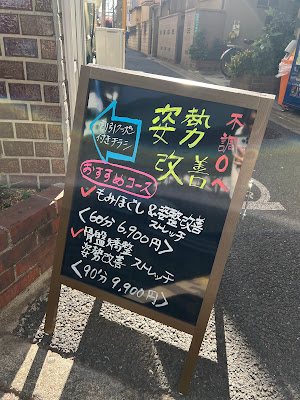 割引クーポン
付きチラシ
姿勢
改善
不調0へ
おすすめコース
✓もみほぐし&姿勢改善
ストレッチ
〈60分 6,900円〉
✓骨盤矯整
姿勢改善ストレッチ
〈90分 9,900円〉